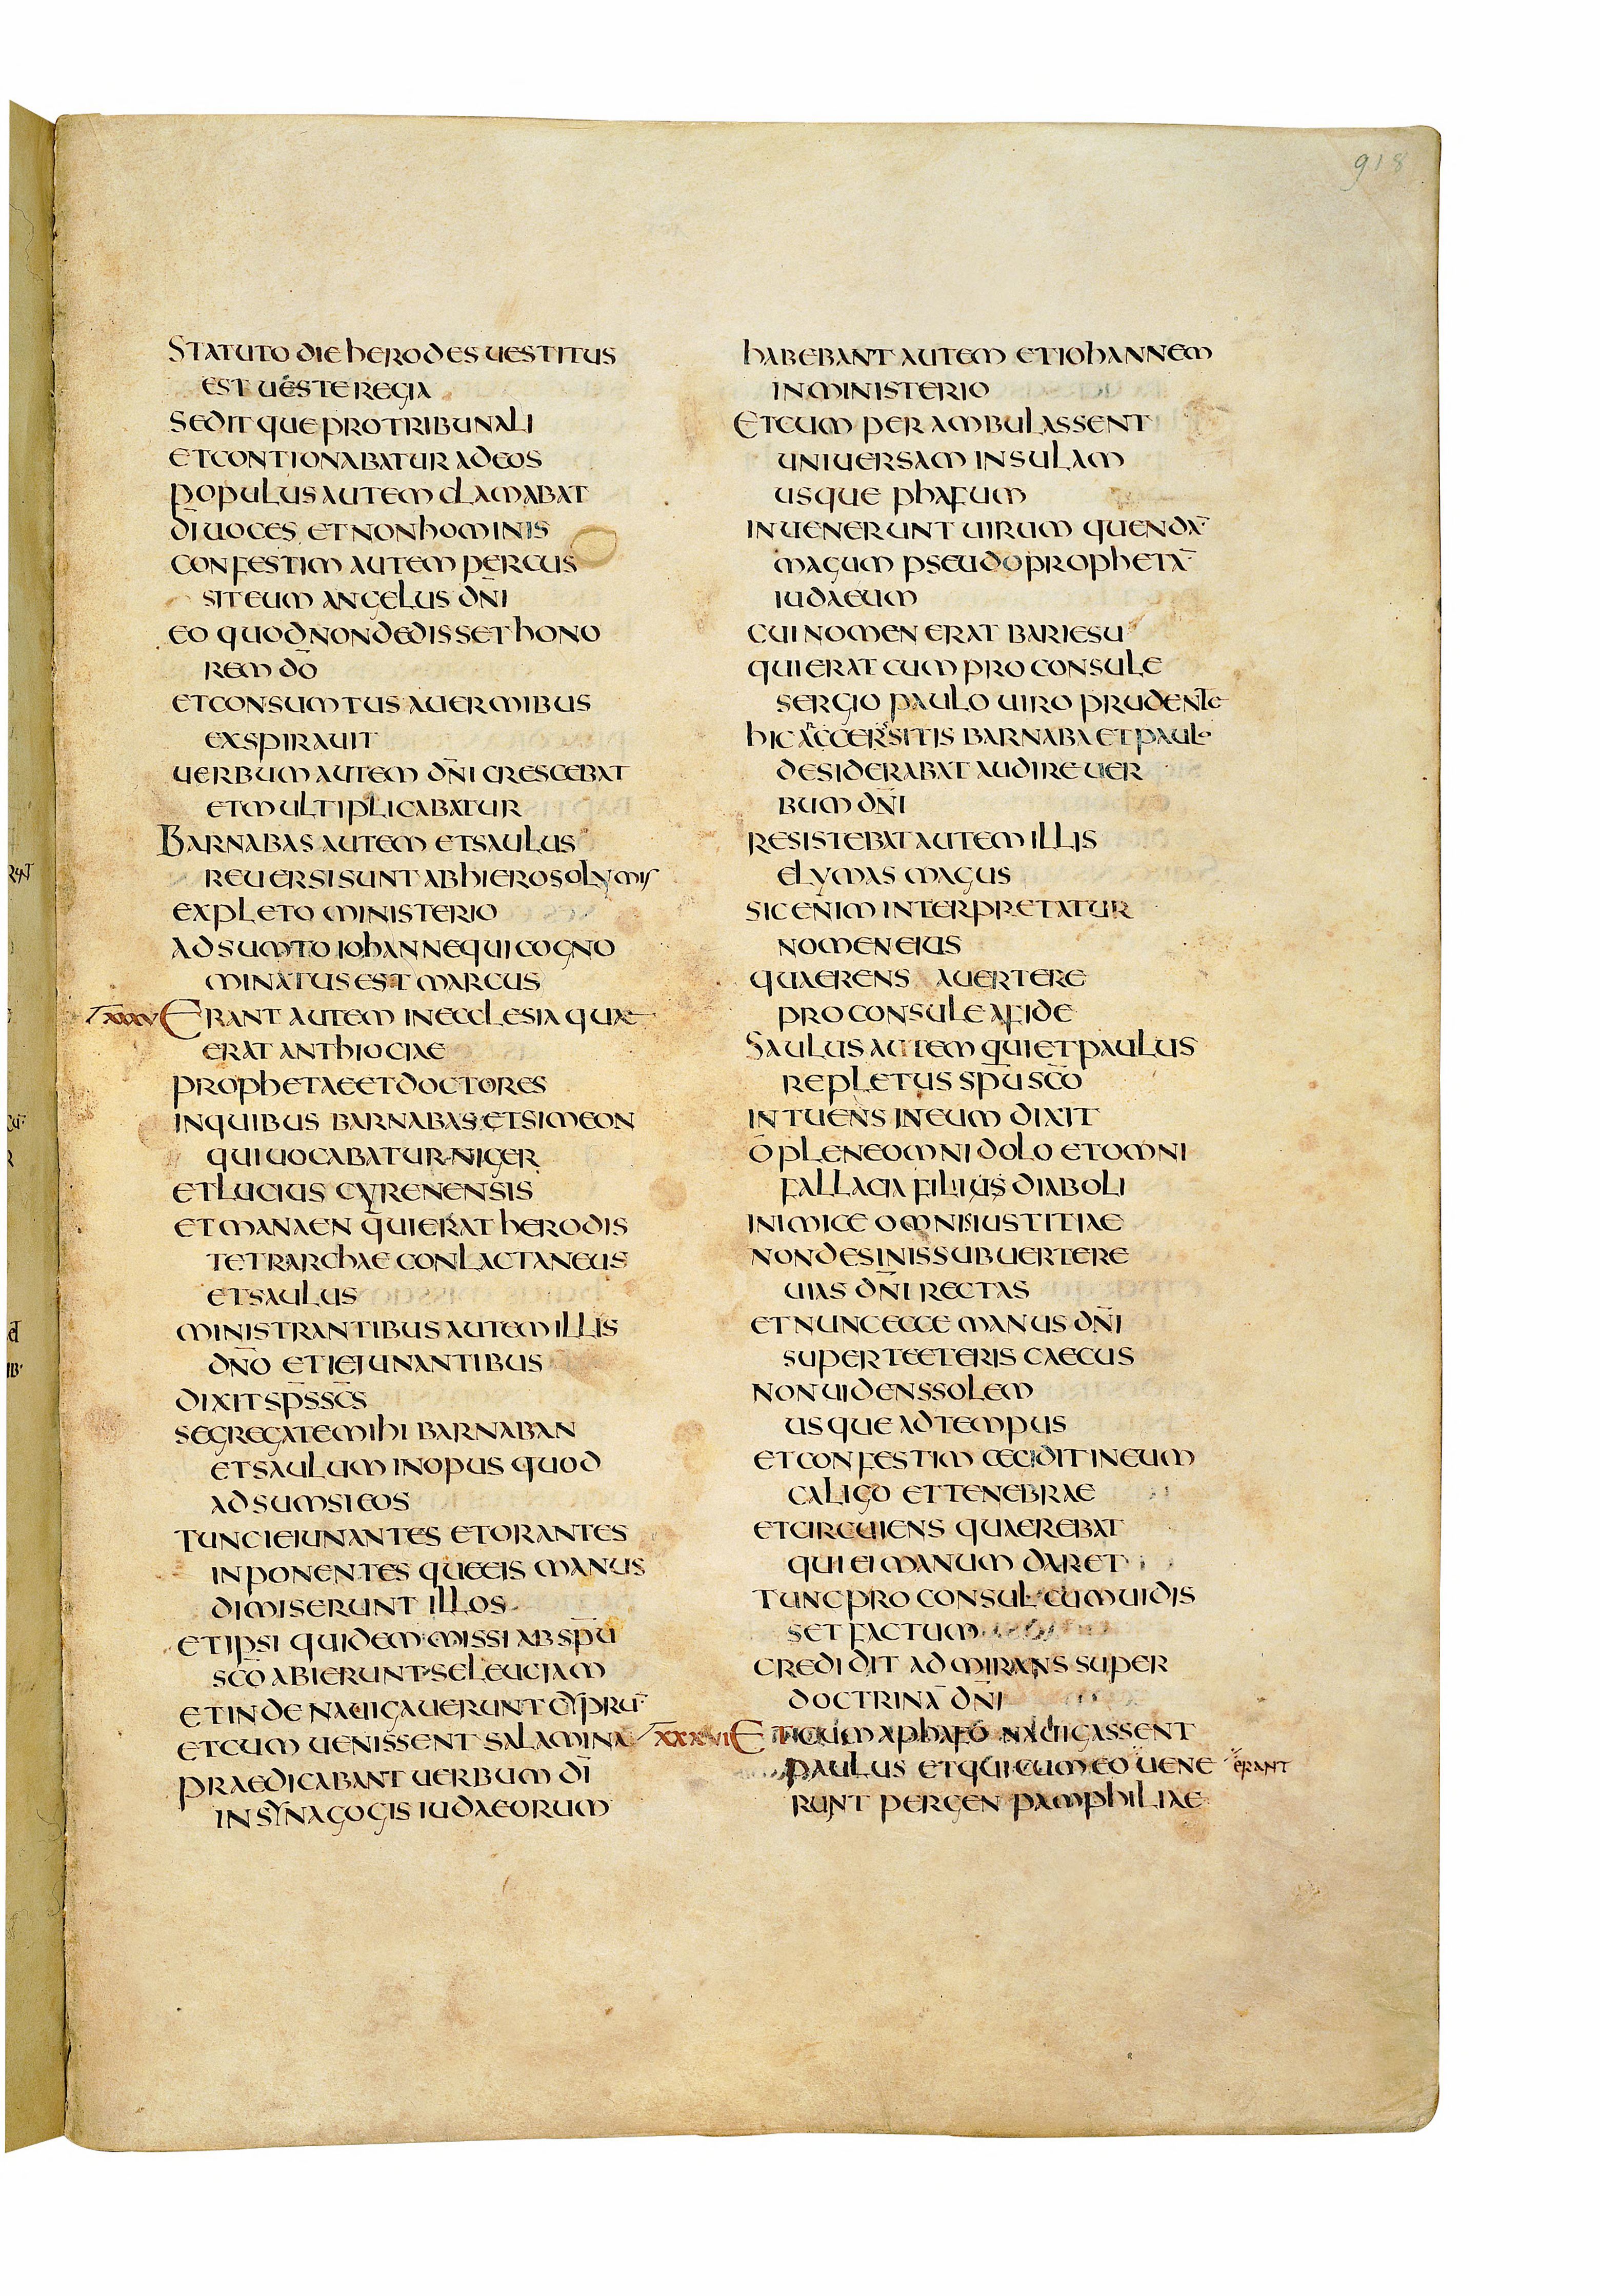 918
STATUTO DIE HERODES UESTITUS
EST UESTE REGIA
SEDITQUE PRO TRIBUNALI
ET CONTIONABATUR AD EOS
POPULUS AUTEM CLAMABAT
D̄I UOCES ET NON HOMINIS
CONFESTIM AUTEM PERCUS
SIT EUM ANGELUS DN̄I
EO QUOD NON DEDISSET HONO
REM D̄O
ET CONSUMTUS A UERMIBUS
EXSPIRAUIT
UERBUM AUTEM DN̄I CRESCEBAT
ET MULTIPLICABATUR
BARNABAS AUTEM ET SAULUS
REUERSI SUNT AB HIEROSOLYMIS
EXPLETO MINISTERIO
ADSUMTO IOHANNE QUI COGNO
MINATUS EST MARCUS
XXXV ERANT AUTEM IN ECCLESIA QUAE
ERAT ANTHIOCIAE
PROPHETAE ET DOCTORES
IN QUIBUS BARNABAS ET SIMEON
QUI UOCABATUR NIGER
ET LUCIUS CYRENENSIS
ET MANAEN QUI ERAT HERODIS
TETRARCHAE CONLACTANEUS
ET SAULUS
MINISTRANTIBUS AUTEM ILLIS
DN̄O ET IEIUNANTIBUS
DIXIT SP̄S SC̄S
SEGREGATE MIHI BARNABAN
ET SAULUM IN OPUS QUOD
ADSUMSI EOS
TUNC IEIUNANTES ET ORANTES
INPONENTESQUE EIS MANUS
DIMISERUNT ILLOS
ET IPSI QUIDEM MISSI AB SPŪ
SC̄O ABIERUNT SELEUCIAM
ET INDE NAUIGAUERUNT CYPRŪ
ET CUM UENISSENT SALAMINA
PRAEDICABANT UERBUM D̄I
IN SYNAGOGIS IUDAEORUM
HABEBANT AUTEM ET IOHANNEM
IN MINISTERIO
ET CUM PERAMBULASSENT
UNIUERSAM INSULAM
USQUE PHAFUM
INUENERUNT UIRUM QUENDĀ
MAGUM PSEUDOPROPHETĀ
IUDAEUM
CUI NOMEN ERAT BARIESU
QUI ERAT CUM PROCONSULE
SERGIO PAULO UIRO PRUDENTE
HIC ACCERSITIS BARNABA ET PAULO
DESIDERABAT AUDIRE UER
BUM DN̄I
RESISTEBAT AUTEM ILLIS
ELYMAS MAGUS
SIC ENIM INTERPRETATUR
NOMEN EIUS
QUAERENS AUERTERE
PROCONSULE A FIDE
SAULUS AUTEM QUI ET PAULUS
REPLETUS SPŪ SC̄O
INTUENS IN EUM DIXIT
Ō PLENE OMNI DOLO ET OMNI
FALLACIA FILIUS DIABOLI
INIMICE OMNIS IUSTITIAE
NON DESINIS SUBUERTERE
UIAS DN̄I RECTAS
ET NUNC ECCE MANUS DN̄I
SUPER TE ET ERIS CAECUS
NON UIDENS SOLEM
USQUE AD TEMPUS
ET CONFESTIM CECIDIT IN EUM
CALIGO ET TENEBRAE
ET CIRCUIENS QUAEREBAT
QUI EI MANUM DARET
TUNC PROCONSUL CUM UIDIS
SET FACTUM
CREDIDIT ADMIRANS SUPER
DOCTRINĀ DN̄I
XXXVI ET CUM A PHAFO NAUIGASSENT
PAULUS ET QUI CUM EO UENE ERANT
RUNT PERGEN PAMPHILIAE